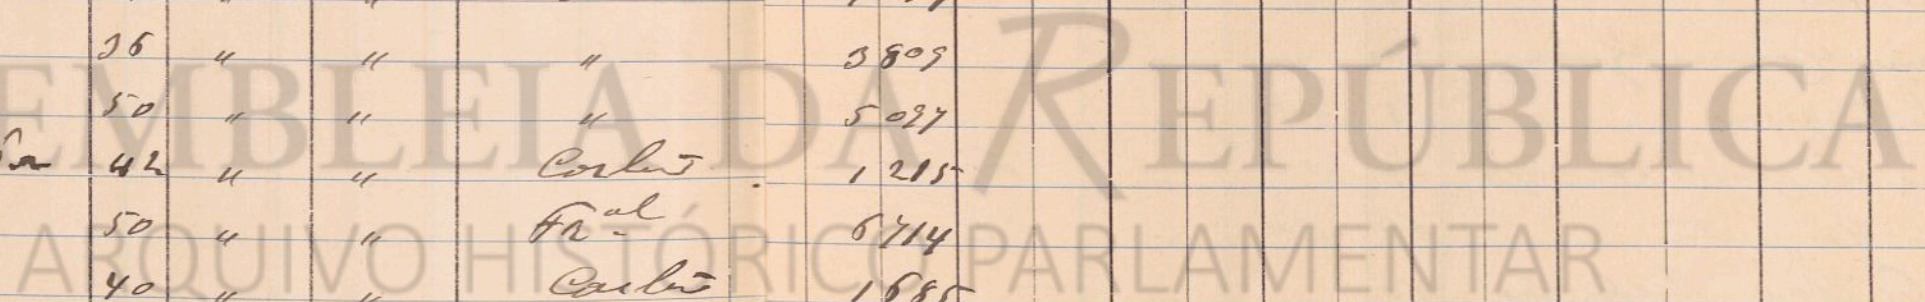 36 " " " 3809
50 " " " 5027
42 " " 1215
50 " " 6714
40 " " 1685
EMBLEIA DA REPÚBLICA
ARQUIVO HISTÓRICO PARLAMENTAR